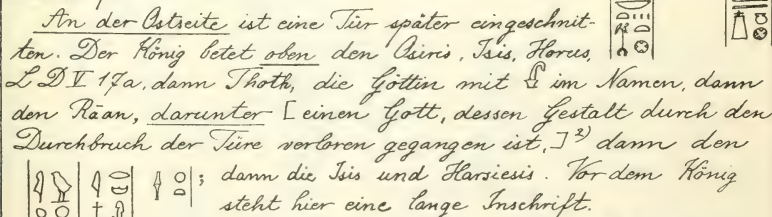 An der Ostseite ist eine Tür später eingeschnit-
ten. Der König betet oben den Osiris, Isis, Horus,
L D V 17a, dann Thoth, die Göttin mit im Namen, dann
den Rāan, darunter [einen Gott, dessen Gestalt durch den
Durchbruch der Türe verloren gegangen ist,]²⁾ dann den
; dann die Isis und Harsiesis. Vor dem König
steht hier eine lange Inschrift.